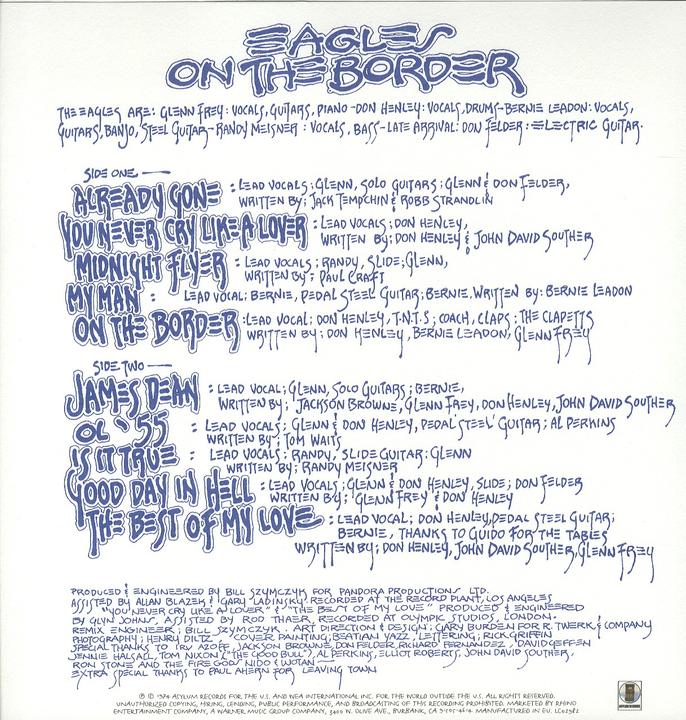 EAGLES
ON THE BORDER
THE EAGLES ARE: GLENN FREY: VOCALS, GUITARS, PIANO - DON HENLEY: VOCALS, DRUMS - BERNIE LEADON: VOCALS,
GUITARS, BANJO, STEEL GUITAR - RANDY MEISNER: VOCALS, BASS - LATE ARRIVAL: DON FELDER: ELECTRIC GUITAR.
SIDE ONE —
ALREADY GONE : LEAD VOCALS; GLENN, SOLO GUITARS; GLENN & DON FELDER,
WRITTEN BY; JACK TEMPCHIN & ROBB STRANDLIN
YOU NEVER CRY LIKE A LOVER : LEAD VOCALS; DON HENLEY,
WRITTEN BY; DON HENLEY & JOHN DAVID SOUTHER
MIDNIGHT FLYER : LEAD VOCALS; RANDY, SLIDE; GLENN,
WRITTEN BY; PAUL CRAFT
MY MAN : LEAD VOCAL; BERNIE, PEDAL STEEL GUITAR; BERNIE, WRITTEN BY: BERNIE LEADON
ON THE BORDER : LEAD VOCAL; DON HENLEY, T.N.T.S; COACH, CLAPS; THE CLAPETTS
WRITTEN BY; DON HENLEY, BERNIE LEADON, GLENN FREY
SIDE TWO —
JAMES DEAN : LEAD VOCAL; GLENN, SOLO GUITARS; BERNIE,
WRITTEN BY; JACKSON BROWNE, GLENN FREY, DON HENLEY, JOHN DAVID SOUTHER
OL '55 : LEAD VOCALS; GLENN & DON HENLEY, PEDAL STEEL GUITAR; AL PERKINS
WRITTEN BY; TOM WAITS
IS IT TRUE : LEAD VOCALS; RANDY, SLIDE GUITAR: GLENN
WRITTEN BY; RANDY MEISNER
GOOD DAY IN HELL : LEAD VOCALS; GLENN & DON HENLEY, SLIDE; DON FELDER
WRITTEN BY; GLENN FREY & DON HENLEY
THE BEST OF MY LOVE : LEAD VOCAL; DON HENLEY, PEDAL STEEL GUITAR;
BERNIE, THANKS TO GUIDO FOR THE TABLES
WRITTEN BY; DON HENLEY, JOHN DAVID SOUTHER, GLENN FREY
PRODUCED & ENGINEERED BY BILL SZYMCZYK FOR PANDORA PRODUCTIONS LTD.
ASSISTED BY ALLAN BLAZEK & GARY LADINSKY RECORDED AT THE RECORD PLANT, LOS ANGELES
"YOU NEVER CRY LIKE A LOVER" & "THE BEST OF MY LOVE" PRODUCED & ENGINEERED
BY GLYN JOHNS, ASSISTED BY ROD THAER, RECORDED AT OLYMPIC STUDIOS, LONDON.
REMIX ENGINEER; BILL SZYMCZYK - ART DIRECTION & DESIGN; GARY BURDEN FOR R. TWERK & COMPANY
PHOTOGRAPHY; HENRY DILTZ COVER PAINTING; BEATIAN YAZZ, LETTERING; RICK GRIFFIN
SPECIAL THANKS TO IRV AZOFF, JACKSON BROWNE, DON FELDER, RICHARD FERNANDEZ, DAVID GEFFEN
JENNIE HALSALL, TOM NIXON ("THE GOOD BULL"), AL PERKINS, ELLIOT ROBERTS, JOHN DAVID SOUTHER,
RON STONE AND THE FIRE GODS NIDO & WOTAN —
EXTRA SPECIAL THANKS TO PAUL AHERN FOR LEAVING TOWN
℗ © 1974 ASYLUM RECORDS FOR THE U.S. AND WEA INTERNATIONAL INC. FOR THE WORLD OUTSIDE THE U.S. ALL RIGHTS RESERVED.
UNAUTHORIZED COPYING, HIRING, LENDING, PUBLIC PERFORMANCE, AND BROADCASTING OF THIS RECORDING PROHIBITED. MARKETED BY RHINO
ENTERTAINMENT COMPANY, A WARNER MUSIC GROUP COMPANY, 3400 W. OLIVE AVE., BURBANK, CA MANUFACTURED IN EU.